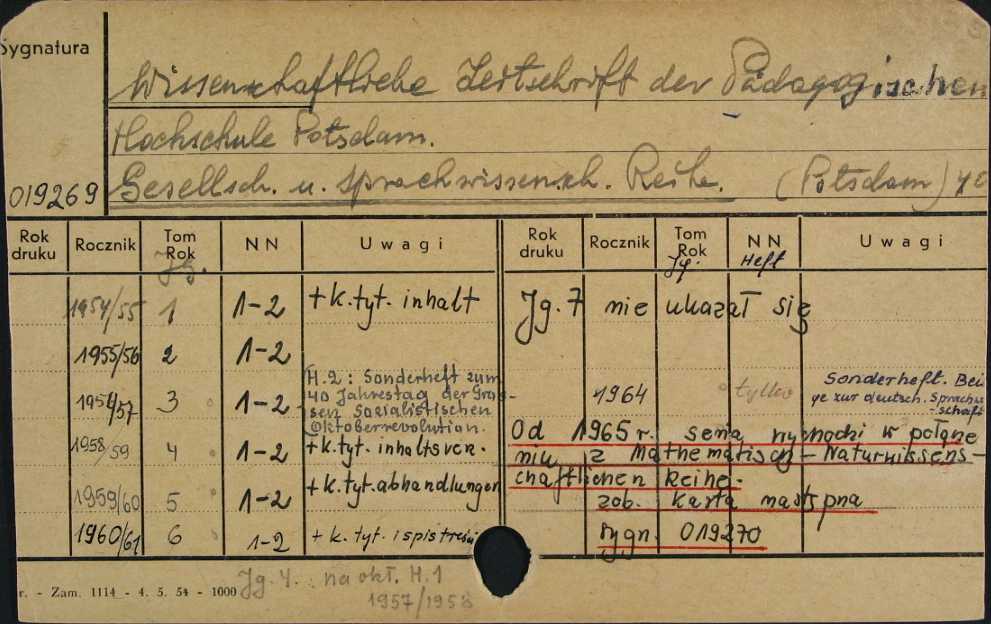 Sygnatura
Wissenschaftliche Zeitschrift der Pädagogischen
Hochschule Potsdam.
019269 Gesellsch. u. sprachwissensch. Reihe. (Potsdam) 40
Rok druku | Rocznik | Tom Rok Jg. | NN | Uwagi | Rok druku | Rocznik | Tom Rok Jg. | NN Heft | Uwagi
1954/55 1 1-2 + k. tyt. inhalt
Jg. 7 nie ukazał się
1955/56 2 1-2
1956/57 3 1-2 H. 2: Sonderheft zum
40 Jahrestag der Gros-
sen Sozialistischen
Oktoberrevolution.
1964 tylko Sonderheft. Bei
ge zur deutsch. Sprachw
-schaft
1958/59 4 1-2 + k. tyt. inhaltsver.
1959/60 5 1-2 + k. tyt. abhandlungen
1960/61 6 1-2 + k. tyt. i spis treści
Od 1965 r. seria wychodzi w połącze
niu z Mathematisch-Naturwissens-
chaftlichen Reihe.
zob. karta następna
sygn. 019270
r. - Zam. 1114 - 4. 5. 54 - 1000
Jg. 4. na okł. H. 1
1957/1958